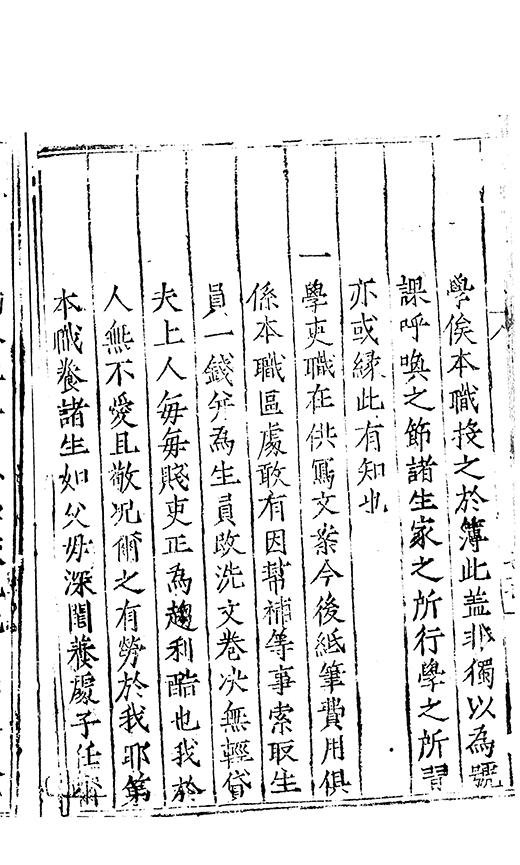 學俟本職授之於簿此盖非獨以為號
課呼喚之節諸生家之所行學之所習
亦或緣此有知也
一學吏職在供寫文案今後紙筆費用俱
係本職區處敢有因幫補等事索取生
員一錢分為生員改洗文卷決無輕貸
夫上人毎毎賤吏正為趨利酷也我於
人無不愛且敬况爾之有勞於我耶第
本職養諸生如父母深閨養處子任